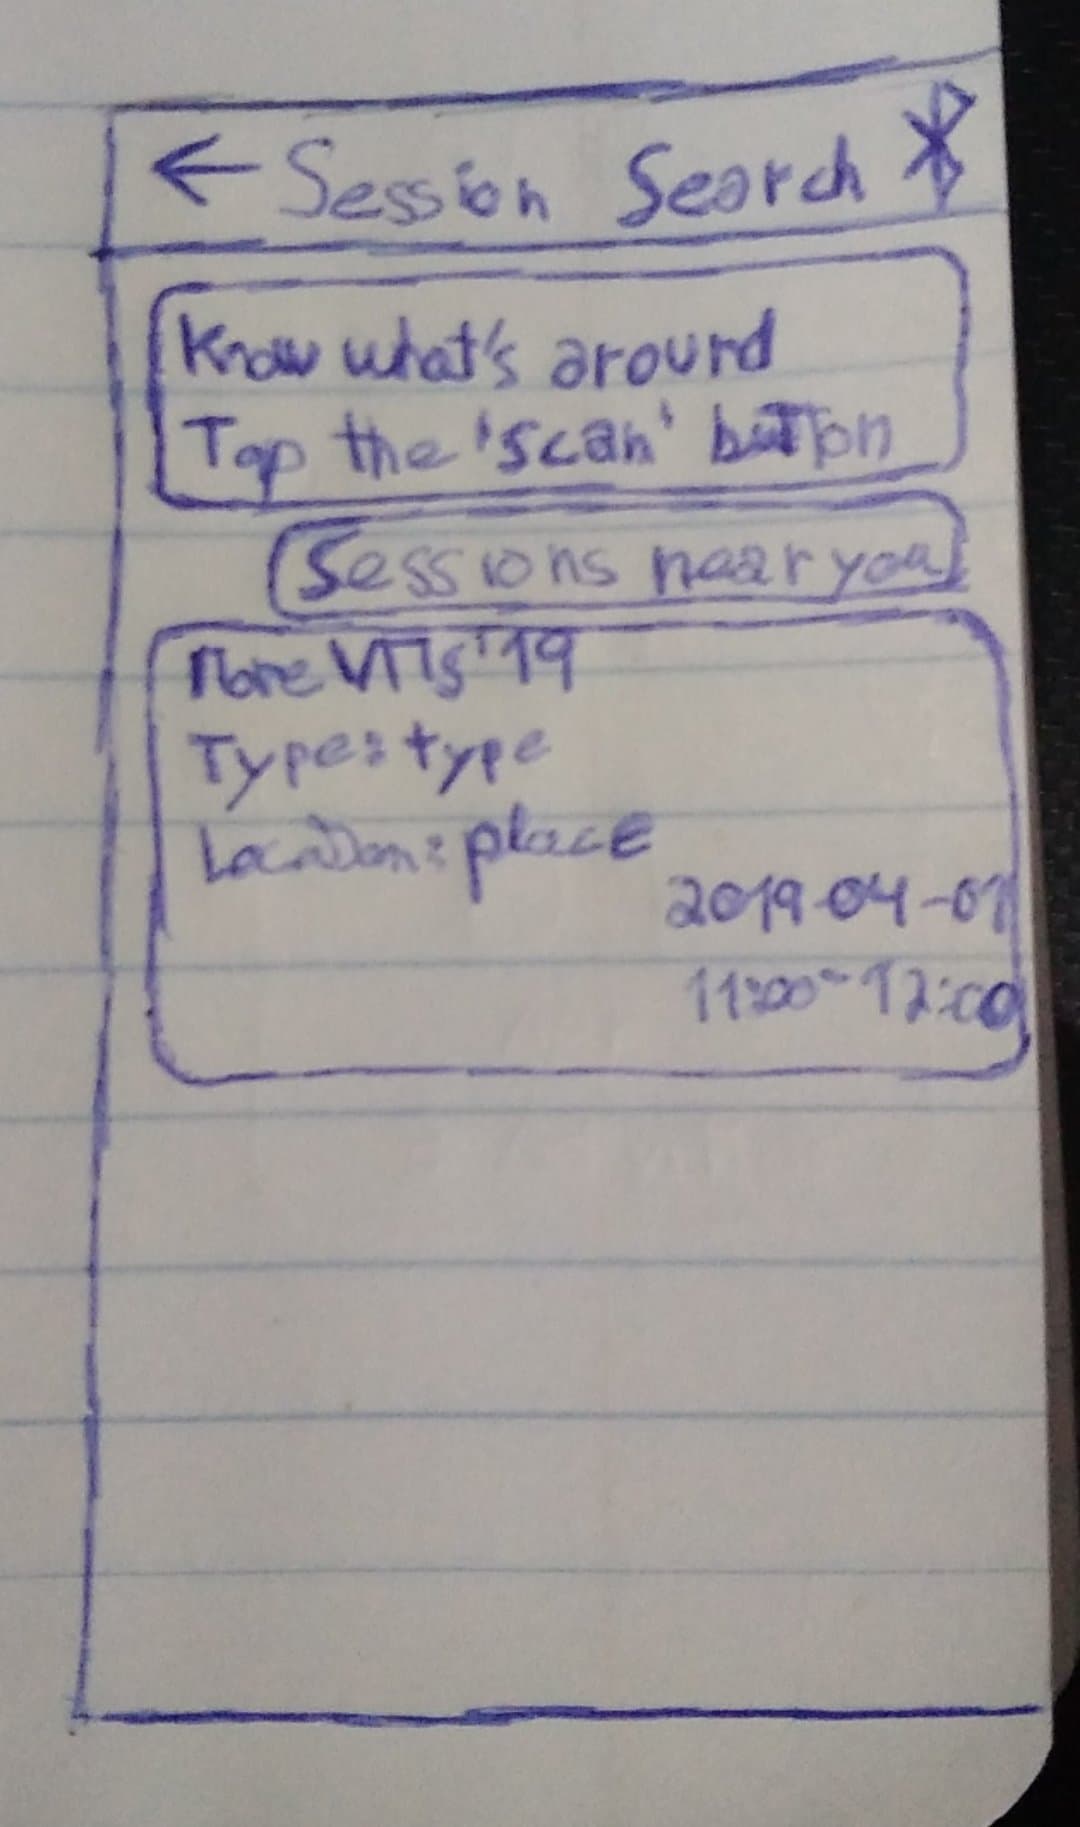 ← Session Search
Know what's around
Tap the 'scan' button
Sessions near you
More VMs '19
Type: type
Location: place
2019-04-07
11:00-12:00